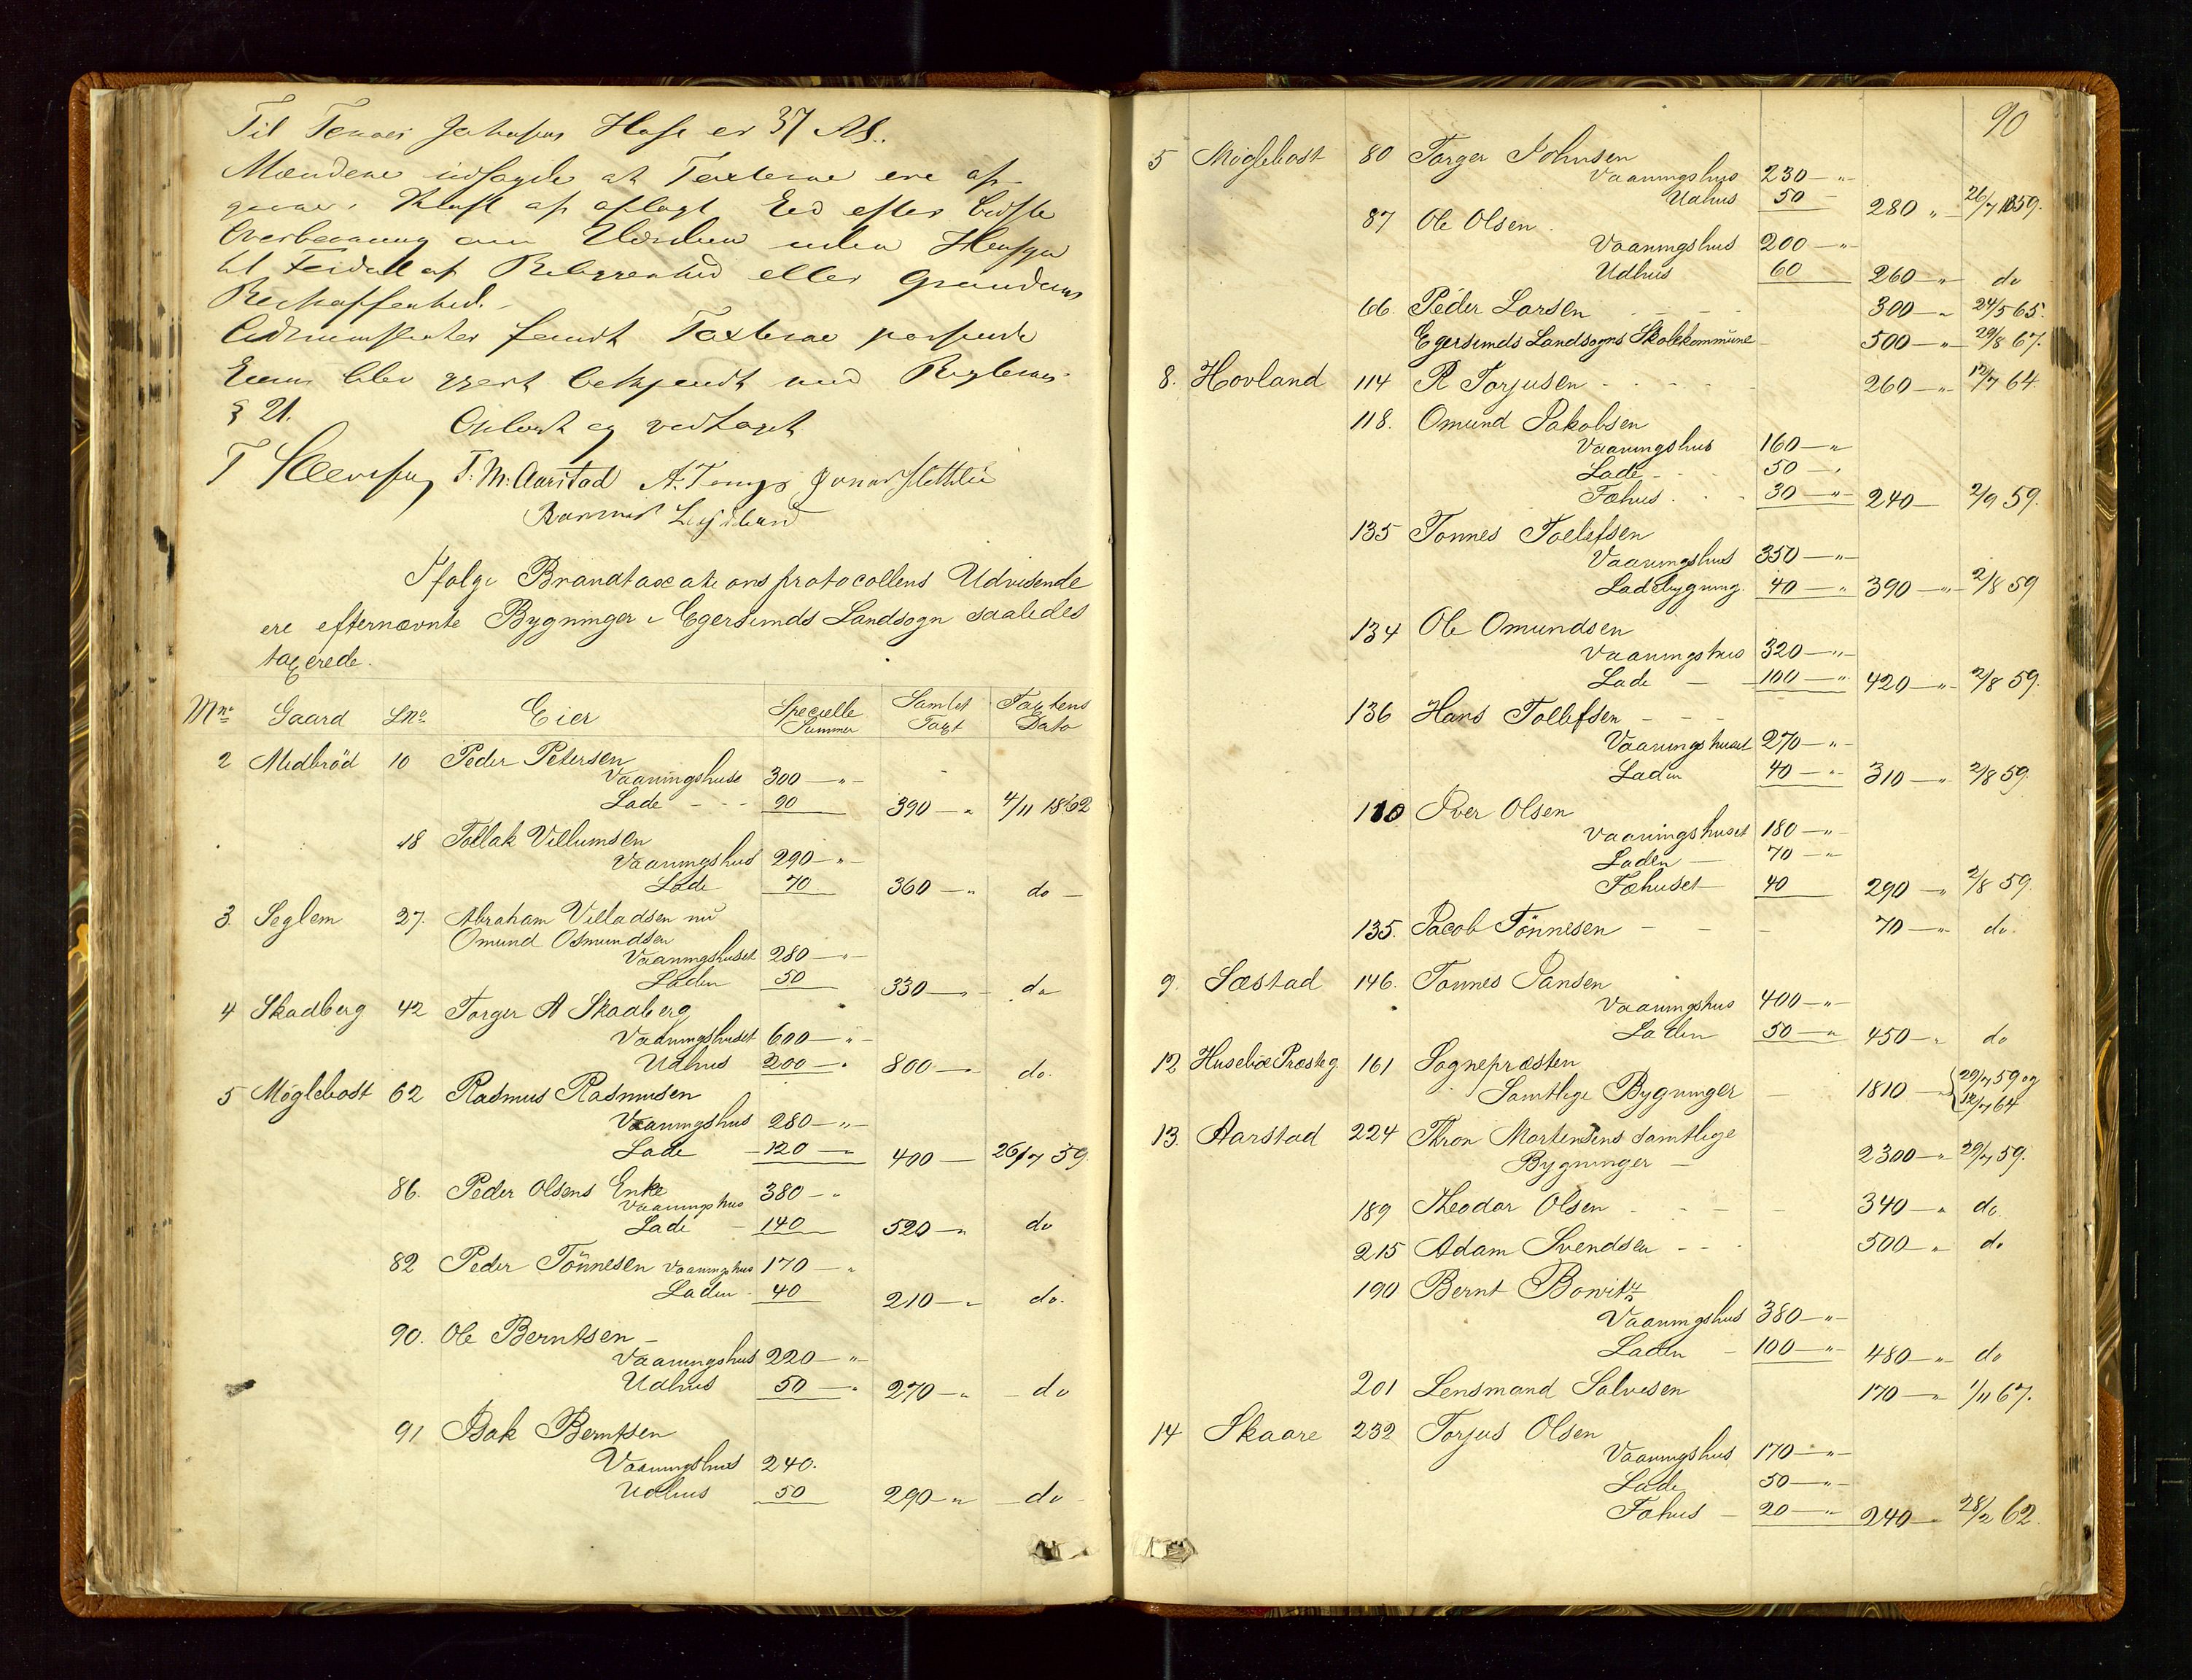 Til Tønnes Jakobsens Hefte er 37 Rd.
Mændene udsagde at Taxterne ere af-
givne i Kraft af aflagt Eed efter bedste
Overbeviisning om Værdien uden Hensyn
til af Beliggenhed eller Grundens
Beskaffenhed.
fandt Taxterne passende
Eieren blev gjort bekjendt med Reglernes
§ 21. Oplæst og vedtaget
T. M. Aarstad
Rasmus
Ifølge Brandtaxationsprotocollens Udvisende
ere efternævnte Bygninger i Egersunds Landsogn saaledes
taxerede.
Mno Gaard LNo Eier Specielle Summer Samlet Taxt Taxtens Dato
2 Midbröd 10 Peder Petersen
Vaaningshuse 300 — "
Lade - - - 90 390 — " 4/11 1862
18 Tollak Villumsen
Vaaningshus 290 — "
Lade 70 360 — " do —
3. Seglem 27. Abraham Villadsen nu
Omund Osmundsen
Vaaningshuset 280 — "
Laden 50 330 — " do
4 Skadberg 42 Torger A Skadberg
Vaaningshuset 600 — "
Udhus 200 — " 800 — " do.
5 Möglebost 62 Rasmus Rasmusen
Vaaningshus 280 — "
Lade — 120 — 400 — 26/7 59.
86. Peder Olsens Enke 380 - "
Vaaningshus
Lade — 140 520 — " do
82 Peder Tönnesen Vaaningshus 170 — "
Laden - 40 210 — " do.
90. Ole Berntsen —
Vaaningshus 220 — "
Udhus 50 — " 270 — " — do
91 Isak Berntsen
Vaaningshus 240.
Udhus 50 290 — " — do
90
5 Möglebost 80 Torger Johnsen
Vaaningshus 230 — "
Udhus 50 280 " 26/7 1859.
87 Ole Olsen.
Vaaningshus 200 — "
Udhus 60 260 — " do
66. Peder Larsen 300 — " 24/5 65.
Egersunds Landsogns Skolekommune 500 — " 29/8 67.
8. Hovland 114 R Torjusen - - - 260 — " 12/7 64.
118. Omund Jakobsen
Vaaningshus 160 — "
Lade - 50 — "
Fæhus. 30 — " 240 — 2/9 59.
135 Tonnes Toelefsen
Vaaningshus 350 — "
Ladebygning. 40 — " 390 — " 2/8 59
134 Ole Omundsen
Vaaningshus 320 — "
Lade — 100 — " 420 — " 2/8 59.
136 Hans Tollefsen - - -
Vaaningshuset 270 — "
Laden 40 — " 310 — " 2/8 59.
110 Iver Olsen
Vaaningshuset 180 — "
Laden — 70 — "
Fæhuset — 40 290 — " 2/8 59.
135. Jacob Tönnesen — — — 70 — " do.
9. Sæstad 146. Tonnes Jansen
Vaaningshus 400 — "
Laden 50 — " 450 — " do
12 Husebiæ Præsteg. 161 Sognepræsten
Samtlige Bygninger — 1810 — " { 29/7 59 og
12/7 64
13. Aarstad 224 Thron Mortensens samtlige
Bygninger — 2300 — " 29/7 59.
189 Theodor Olsen - - - 340 — " do.
215 Adam Svendsen - - - 500 — " do
190 Bernt Bowitz
Vaaningshus 380 — "
Laden — 100 — " 480 — " do
201 Lensmand Salvesen 170 — " 1/11 67.
14 Skaare 232 Torjus Olsen
Vaaningshus 170 — "
Lade 50 — "
Fæhus — 20 — " 240 — " 28/2 62.